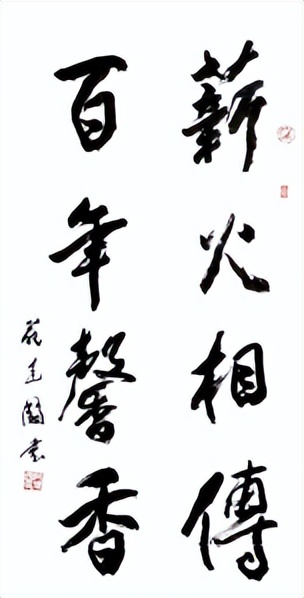 薪火相傳
百年馨香